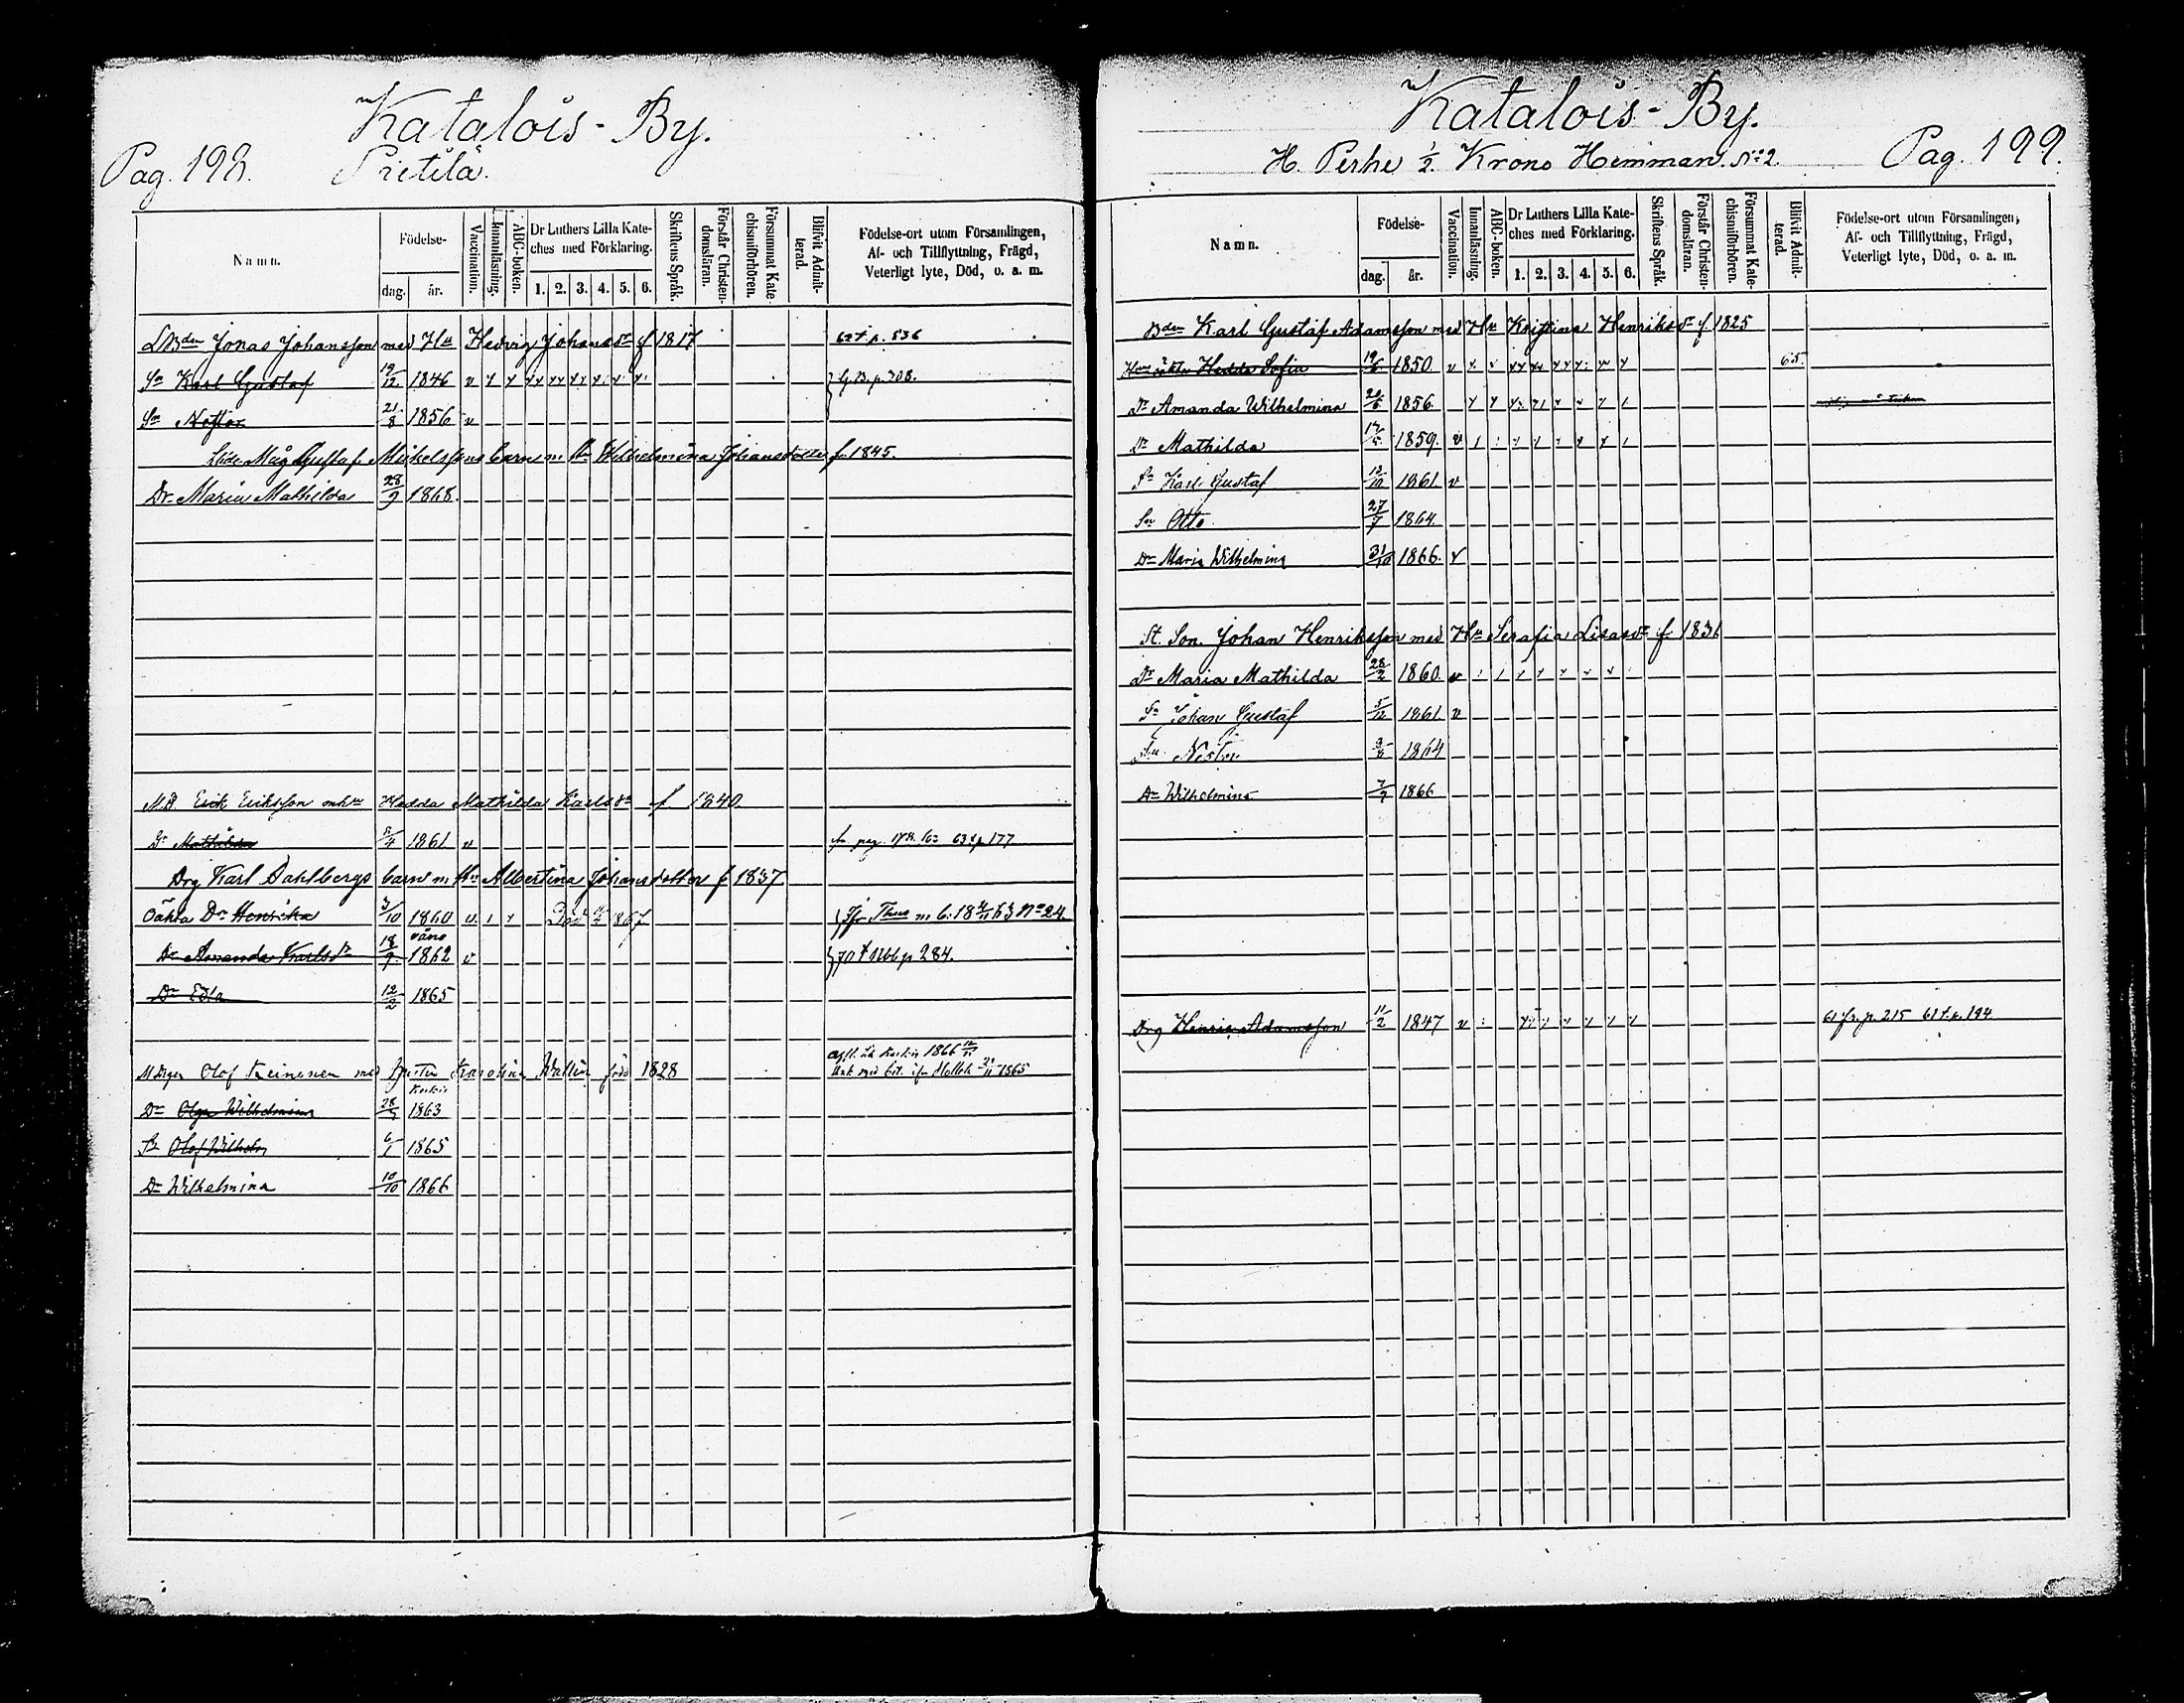 Katalois - By.
Pag. 198. Pietilä.
Namn. Födelse- dag. år. Vaccination. Innanläsning. ABC-boken. Dr Luthers Lilla Kateches med Förklaring. 1. 2. 3. 4. 5. 6. Skriftens Språk. Förstår Christendomsläran. Försummat Katechismiförhören. Blifvit Admitterad. Födelse-ort utom Församlingen, Af- och Tillflyttning, Frägd, Veterligt lyte, Död, o. a. m.
Bden Jonas Johansson med Hu Hedvig Johansdr f 1817 62 t. p. 536
Sn Karl Gustaf 19/12 1846 v G.B. p. 308.
Sn Nestor 21/8 1856 v
Måg Gustaf Mickelssons barn m Hu Wilhelmina Johansdotter f. 1845.
Dr Maria Mathilda 28/9 1868.
Erik Eriksson m hu Hedda Mathilda Karlsdr f 1840
Dr Mathilda 5/4 1861 v 63 t p 177.
Drg Karl Dahlbergs barn m Hu Albertina Johansdotter f 1837.
Oäkta Dr Henrika 3/10 1860 v. Död 1867 No 24.
Dr Amanda Karlsdr 18/9 1862 v 70 t p 284.
Dr Edla 12/2 1865
Olof Keinonen med Karolina Wallin född 1828 1866 1865
Dr Olga Wilhelmina 1863
Sn Olof Wilhelm 6/7 1865
Dr Wilhelmina 12/10 1866
Katalois - By.
H. Perhe 1/2. Krono Hemman. No 2. Pag. 199.
Namn. Födelse- dag. år. Vaccination. Innanläsning. ABC-boken. Dr Luthers Lilla Kateches med Förklaring. 1. 2. 3. 4. 5. 6. Skriftens Språk. Förstår Christendomsläran. Försummat Katechismiförhören. Blifvit Admitterad. Födelse-ort utom Församlingen, Af- och Tillflyttning, Frägd, Veterligt lyte, Död, o. a. m.
Bden Karl Gustaf Adamsson med Hu Kristina Henriksdr f. 1825
Hedda Sofia 19/6 1850 v 65
Dr Amanda Wilhelmina 1856
Dr Mathilda 1859. v
Sn Karl Gustaf 1861 v
Sn Otto 27/7 1864.
Dr Maria Wilhelmina 31/10 1866.
St. Son. Johan Henriksson med Hu Serafia Lisasdr f. 1836
Dr Maria Mathilda 28/2 1860. v
Sn Johan Gustaf 5/12 1861 v
Sn Nestor 1864
Dr Wilhelmina 7/7 1866
Drg Henric Adamsson 11/2 1847 v 61 fr. p. 215 61 t. p. 194